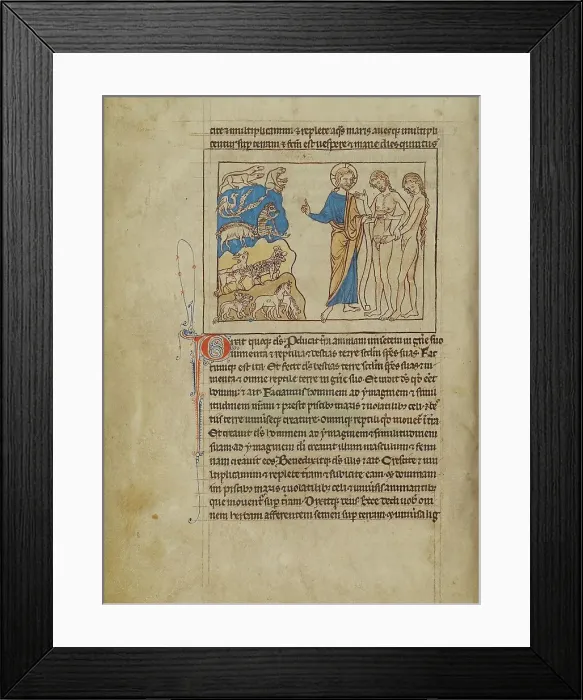 cite & multiplicamini & replete aq̄s maris aues q̧ multipli
centur sup terram & f̄c̄m est uespere & mane dies quintus
Dixit quoq̧ d̄s Producat t̄ra animam uiuentem in gn̄e suo
iumenta & reptilia & bestias terre sc̄dm sp̄es suas Fac
tumq̧ est ita Et fecit d̄s bestias terre sc̄dm sp̄es suas & iu
menta & omne reptile terre in gn̄e suo Et uidit d̄s q̊d eēt
bonum & ait Faciamus hominem ad ymaginem & simi
litudinem nr̄am & presit piscibus maris & uolatilibus celi & be
tiis terre uniuseq̧ creature omniq̧ reptili q̊d mouet᷑ ī t̄ra
Et creauit d̄s hominem ad ymaginem & similitudinem
suam ad ymaginem d̄i creauit illum masculum & femi
nam creauit eos Benedixitq̧ d̄s illis & ait Crescite & mul
tiplicamini & replete t̄ram & subicite eam & dominami
ni piscibus maris & uolatilibus celi & uniuersis animantibus
que mouent᷑ sup t̄ram Dixitq̧ deus Ecce dedi uob̄ om
nem herbam afferentem semen sup terram & uniuersa lig